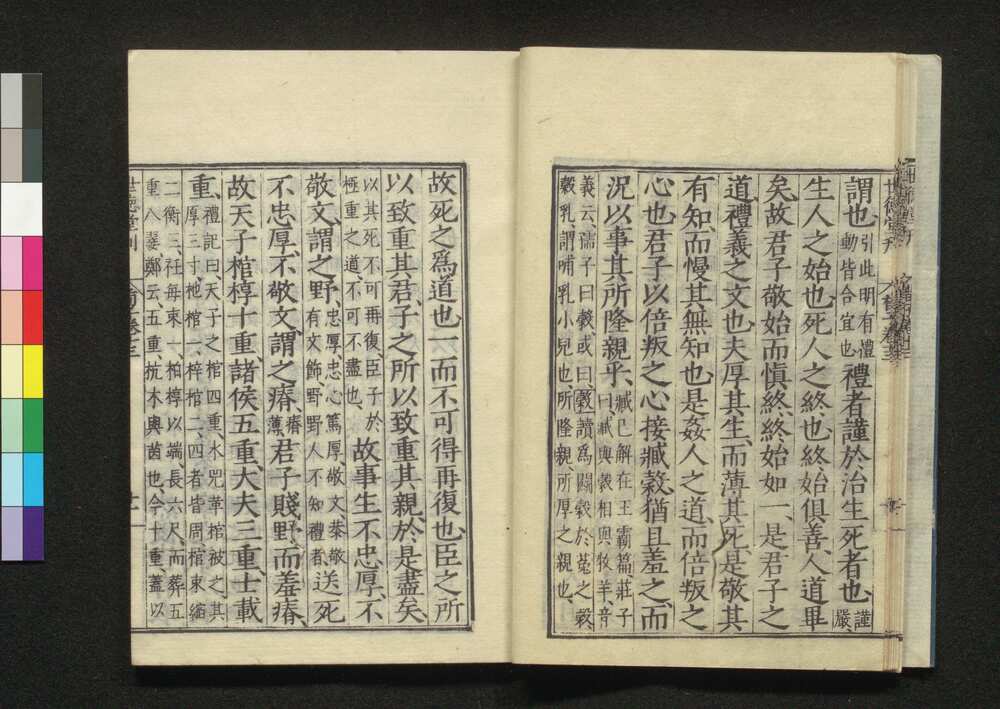 謂也引此明有禮動皆合宜也禮者謹於治生死者也謹嚴
生人之始也死人之終也終始俱善人道畢
矣故君子敬始而愼終終始如一是君子之
道禮義之文也夫厚其生而薄其死是敬其
有知而慢其無知也是姦人之道而倍叛之
心也君子以倍叛之心接臧穀猶且羞之而
況以事其所隆親乎臧已解在王霸篇莊子曰臧與穀相與牧羊音
義云孺子曰穀或曰穀讀爲鬭穀於菟之穀穀乳謂哺乳小兒也所隆親所厚之親也
故死之爲道也一而不可得再復也臣之所
以致重其君子之所以致重其親於是盡矣
以其死不可再復臣子於極重之道不可不盡也故事生不忠厚不
敬文謂之野忠厚忠心篤厚敬文恭敬有文飾野野人不知禮者送死
不忠厚不敬文謂之瘠瘠薄君子賤野而羞瘠
故天子棺椁十重諸侯五重大夫三重士載
重禮記曰天子之棺四重水兕革棺被之其厚三寸杝棺一梓棺二四者皆周棺束縮
二衡三衽每束一柏椁以端長六尺而葬五重八翣鄭云五重抗木與茵也今十重蓋以
世德堂刊